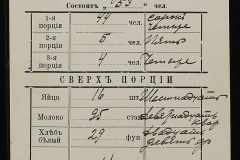 Состоитъ „53“ чел.
1-я порція 44 чел. сорокъ четыре
2-я порція 5 чел. пять
3-я порція 4 чел. четыре
СВЕРХЪ ПОРЦІИ
Яйца 16 шт. Шестнадцать
Молоко 25 ст.
Хлѣбъ бѣлый 29 фун. двадцать девять фр